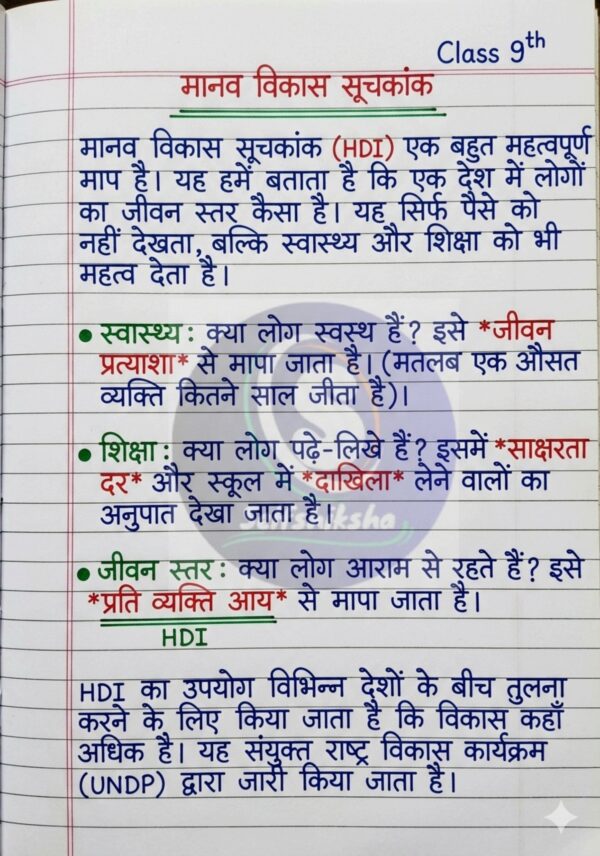 Class 9th
मानव विकास सूचकांक
मानव विकास सूचकांक (HDI) एक बहुत महत्वपूर्ण
माप है। यह हमें बताता है कि एक देश में लोगों
का जीवन स्तर कैसा है। यह सिर्फ पैसे को
नहीं देखता, बल्कि स्वास्थ्य और शिक्षा को भी
महत्व देता है।
• स्वास्थ्य: क्या लोग स्वस्थ हैं? इसे *जीवन
प्रत्याशा* से मापा जाता है। (मतलब एक औसत
व्यक्ति कितने साल जीता है)।
• शिक्षा: क्या लोग पढ़े-लिखे हैं? इसमें *साक्षरता
दर* और स्कूल में *दाखिला* लेने वालों का
अनुपात देखा जाता है।
• जीवन स्तर: क्या लोग आराम से रहते हैं? इसे
*प्रति व्यक्ति आय* से मापा जाता है।
HDI
HDI का उपयोग विभिन्न देशों के बीच तुलना
करने के लिए किया जाता है कि विकास कहाँ
अधिक है। यह संयुक्त राष्ट्र विकास कार्यक्रम
(UNDP) द्वारा जारी किया जाता है।